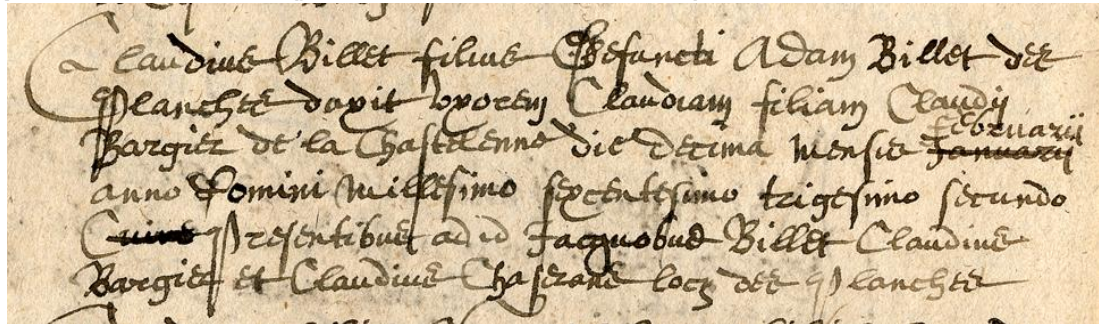 Claudius Billet filius Defuncti Adam Billet des
Planches duxit uxorem Claudiam filiam Claudij
Bargier de la Chastelenne die decima mensis Januarij Februarij
anno Domini Millesimo sexcentesimo trigesimo secundo
Presentibus ad id Jacquobus Billet Claudius
Bargier et Claudius Chaserans locj des Planches